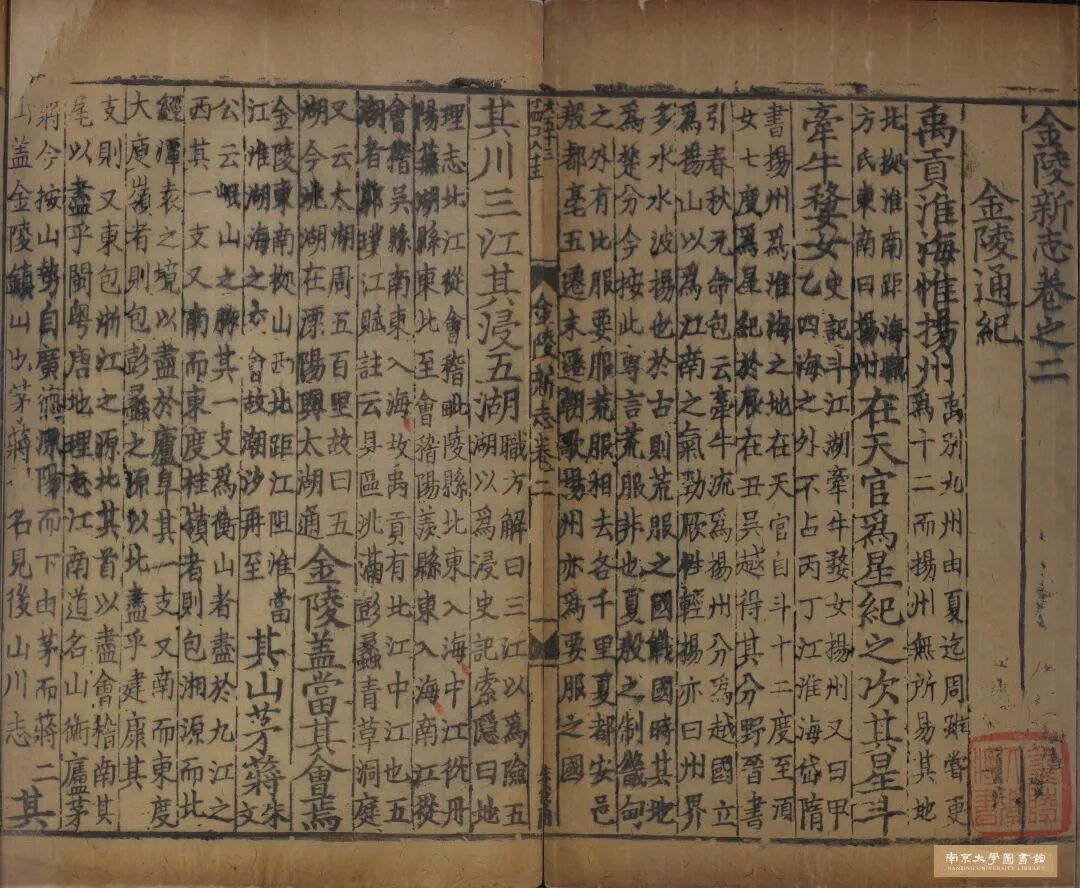 金陵新志卷之二
金陵通紀
禹貢淮海惟揚州禹別九州由夏迄周雖嘗更
爲十二而揚州無所易其地
北據淮南距海職
方氏東南曰揚州在天官爲星紀之次其星斗
牽牛婺女史記斗江湖牽牛婺女揚州又曰甲
乙四海之外不占丙丁江淮海岱隋
書揚州爲淮海之地在天官自斗十二度至須
女七度爲星紀於辰在丑吳越得其分野晉書
引春秋元命包云牽牛流爲揚州分爲越國立
爲揚山以爲江南之氣勁厥性輕揚亦曰州界
多水水波揚也於古則荒服之國戰國時其地
爲楚分今按此專言荒服非也夏殷之制畿甸
之外有比服要服荒服相去各千里夏都安邑
殷都亳五遷末遷朝歌揚州亦爲要服之國
金陵新志卷二
一
其川三江其浸五湖職方解曰三江以爲險五
湖以爲浸史記索隱曰地
理志北江從會稽毗陵縣北東入海中江從丹
陽蕪湖縣東北至會稽陽羨縣東入海南江從
會稽吳縣南東入海故禹貢有北江中江也五
湖者郭璞江賦註云具區洮滆彭蠡青草洞庭
又云太湖周五百里故曰五
湖今洮湖在溧陽與太湖通金陵蓋當其會焉
金陵東南據山西北距江阻淮當
江淮湖海之會故潮汐再至其山茅蔣朱文
公云岷山之脉其一支爲衡山者盡於九江之
西其一支又南而東度桂嶺者則包湘源而北
經潭袁之境以盡於廬阜其一支又南而東度
大庾嶺者則包彭蠡之源以北盡乎建康其
支則又東包浙江之源北其首以盡會稽南其
尾以盡乎閩粤唐地理志江南道名山衡廬茅
蔣今按山勢自廣德溧陽而下由茅而蔣
山蓋金陵鎮山也茅蔣二名見後山川志其
南京大學圖書館
NANJING UNIVERSITY LIBRARY